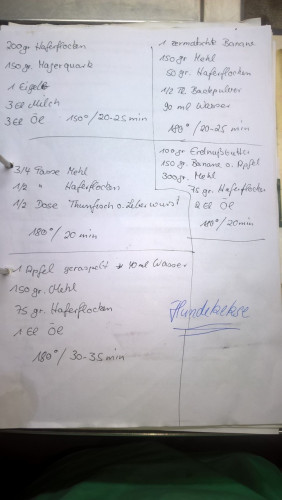 200gr Haferflocken
150gr. Magerquark
1 Eigelb
3 El Milch
3 El Öl 150°/20-25 min
3/4 Tasse Mehl
1/2 " Haferflocken
1/2 Dose Thunfisch o. Leberwurst
180°/20 min
1 Apfel geraspelt + 90 ml Wasser
150 gr. Mehl
75 gr. Haferflocken
1 El Öl
180°/30-35 min
1 zermatschte Banane
150 gr Mehl
50 gr. Haferflocken
1/2 TL Backpulver
90 ml Wasser
180°/20-25 min
100 gr Erdnußbutter
150 gr. Banane o. Apfel
300 gr. Mehl
75 gr. Haferflocken
2 El Öl
180°/20min
Hundekekse